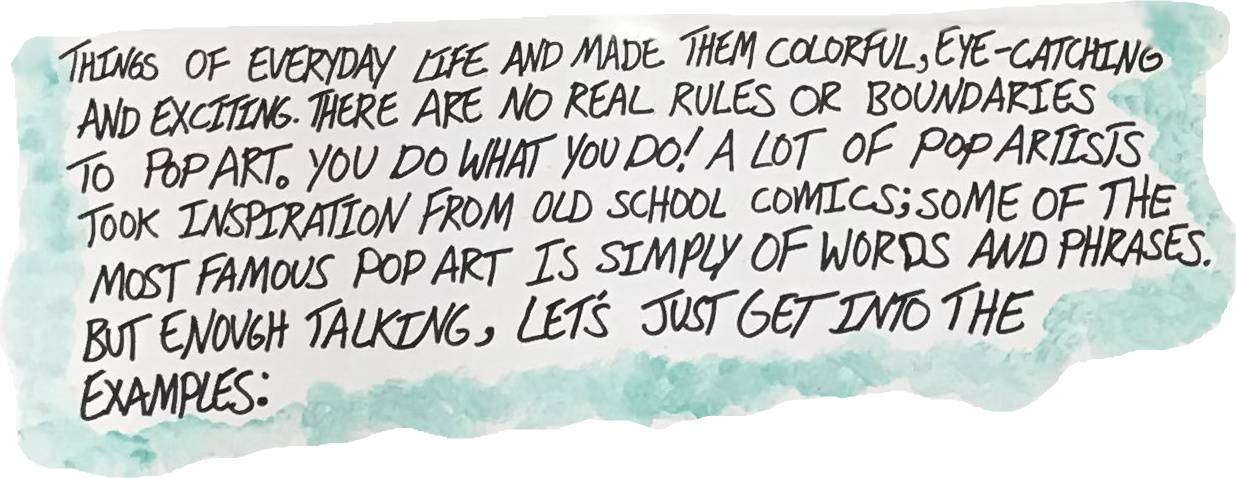 THINGS OF EVERYDAY LIFE AND MADE THEM COLORFUL, EYE-CATCHING
AND EXCITING. THERE ARE NO REAL RULES OR BOUNDARIES
TO POP ART. YOU DO WHAT YOU DO! A LOT OF POP ARTISTS
TOOK INSPIRATION FROM OLD SCHOOL COMICS; SOME OF THE
MOST FAMOUS POP ART IS SIMPLY OF WORDS AND PHRASES.
BUT ENOUGH TALKING, LET'S JUST GET INTO THE
EXAMPLES: